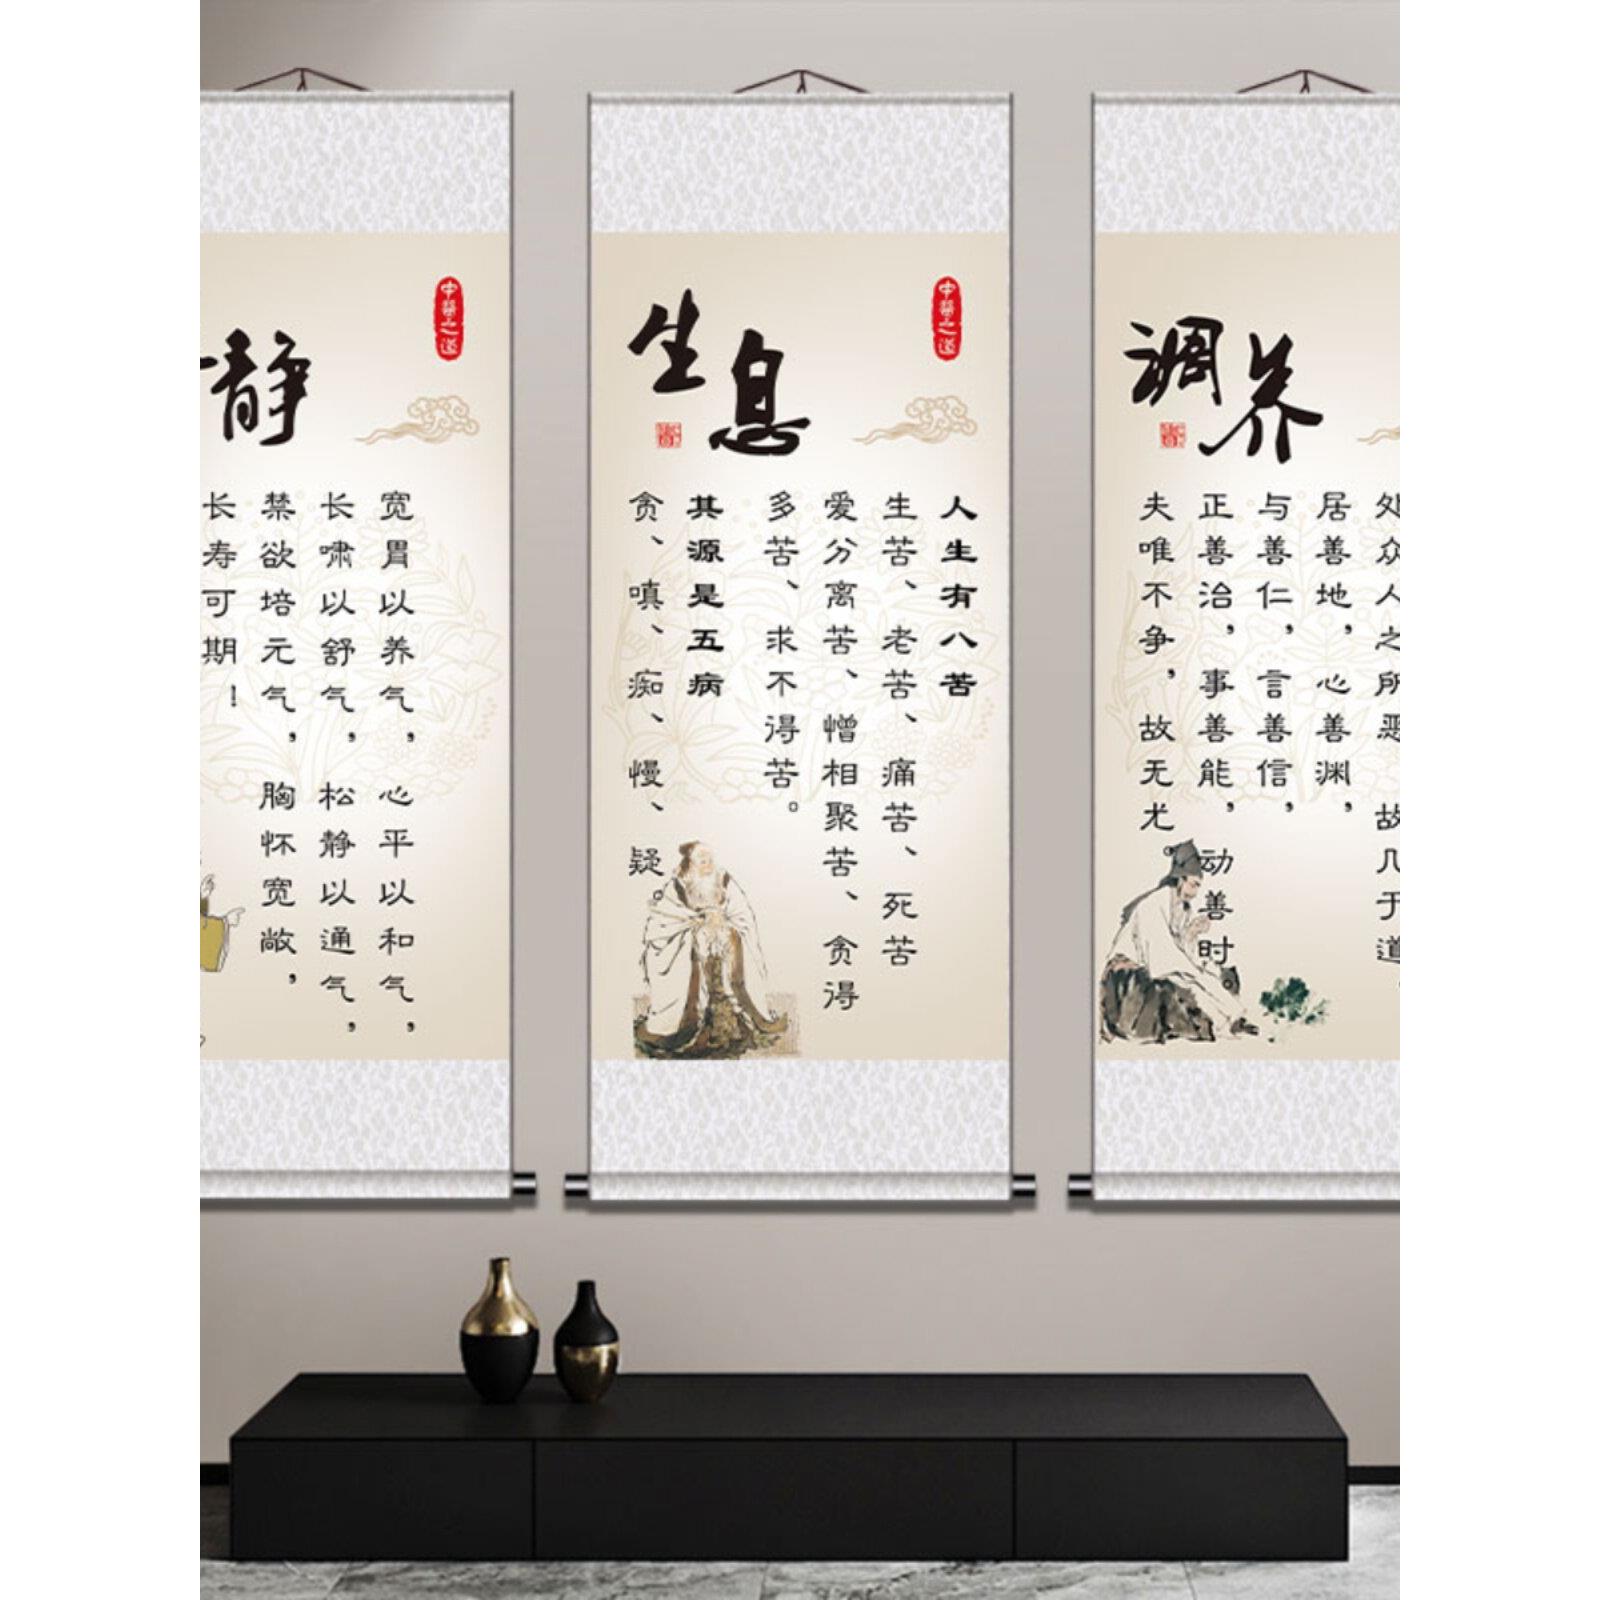 静
中医之道
宽胃以养气，心平以和气，
长啸以舒气，松静以通气，
禁欲培元气，胸怀宽敞，
长寿可期！
生息
中医之道
人生有八苦
生苦、老苦、痛苦、死苦
爱分离苦、憎相聚苦、贪得
多苦、求不得苦。
其源是五病
贪、嗔、痴、慢、疑。
调养
处众人之所恶，故几于道
居善地，心善渊，
与善仁，言善信，
正善治，事善能，动善时。
夫唯不争，故无尤。